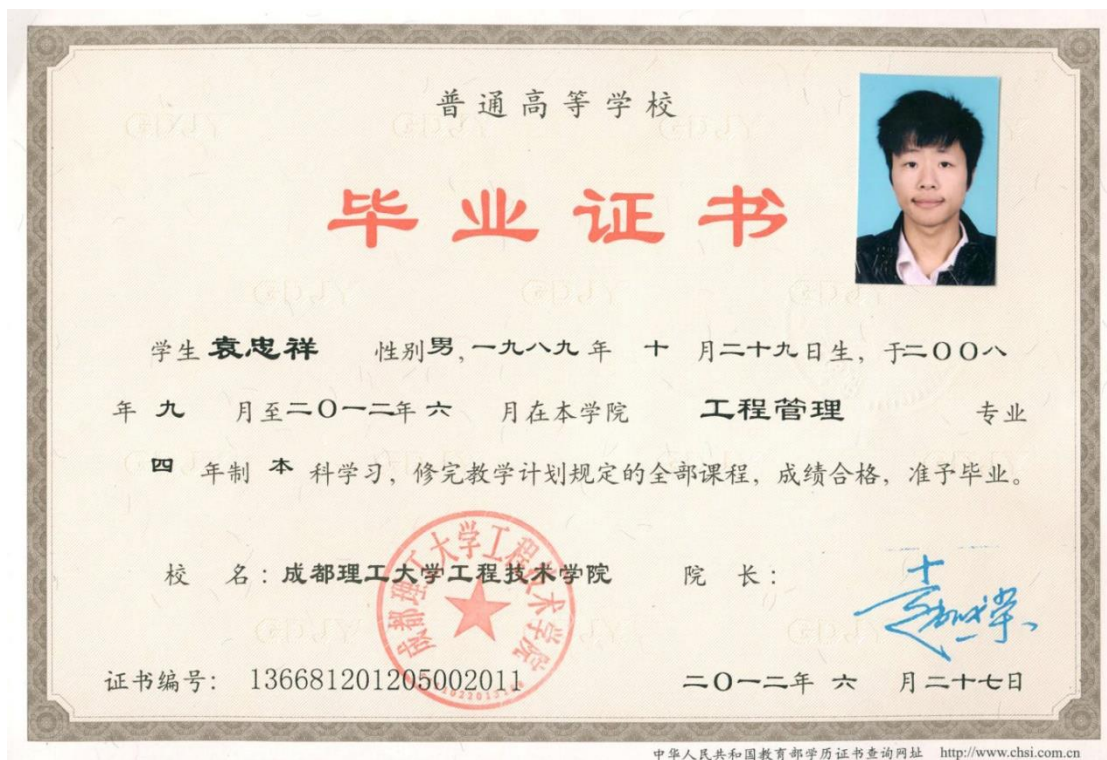 普通高等学校
毕业证书
学生 袁忠祥 性别 男, 一九八九 年 十 月 二十九 日生, 于 二〇〇八
年 九 月至 二〇一二 年 六 月在本学院 工程管理 专业
四 年制 本 科学习, 修完教学计划规定的全部课程, 成绩合格, 准予毕业。
成都理工大学工程技术学院
校 名: 成都理工大学工程技术学院 院 长:
证书编号: 136681201205002011 二〇一二年 六 月二十七日
中华人民共和国教育部学历证书查询网址 http://www.chsi.com.cn
GDJY